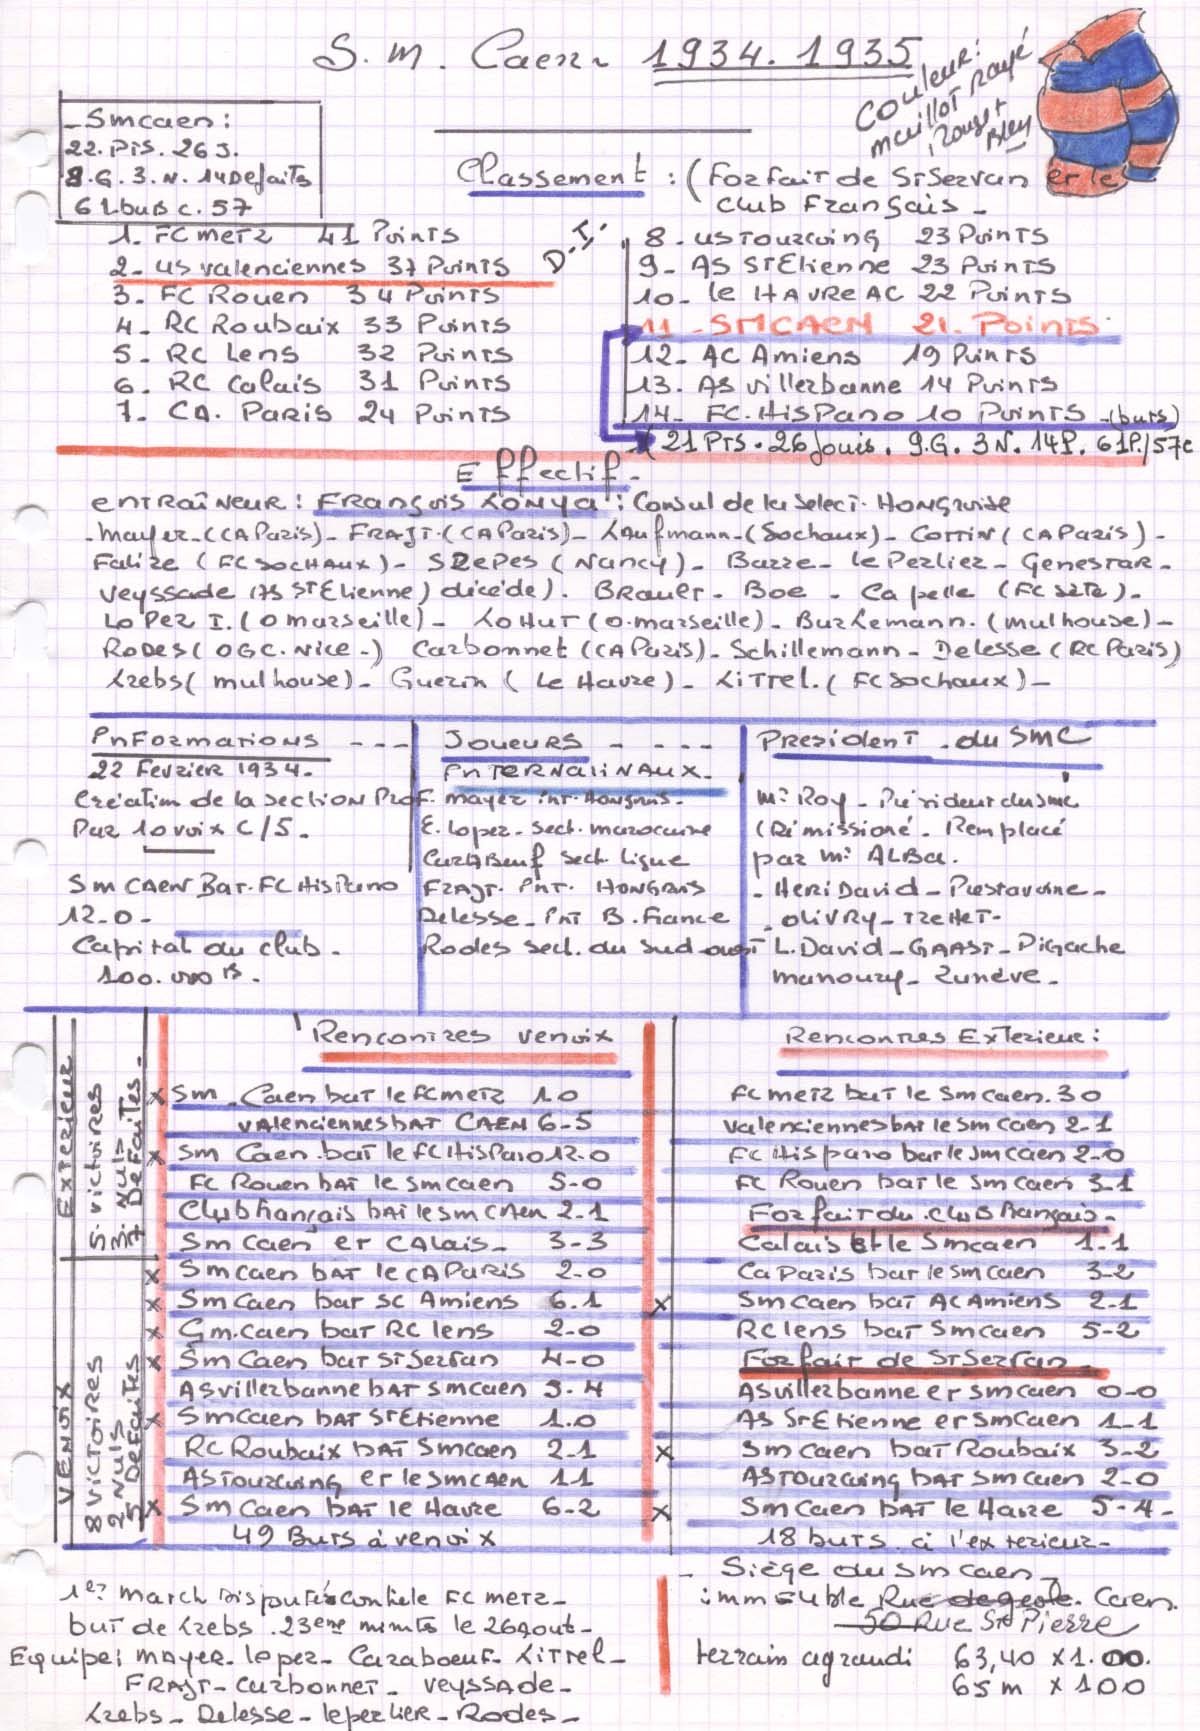 S. m. Caen 1934. 1935
Couleur:
maillot rayé
Rouge +
Bleu
- Smcaen:
22. Pts. 26 J.
8. G. 3. N. 14 Defaits
61 buts c. 57
Classement : (Forfait de St Servan et le
club Français -
1. FC metz 41 Points
2. US valenciennes 37 Points
3. FC Rouen 34 Points
4. RC Roubaix 33 Points
5. RC Lens 32 Points
6. RC Calais 31 Points
7. CA. Paris 24 Points
D. I.
8. US Tourcoing 23 Points
9. AS St Etienne 23 Points
10. le HAVRE AC 22 Points
11 - SMCAEN 21. Points
12. AC Amiens 19 Points
13. AS villerbanne 14 Points
14. FC. Hispano 10 Points - (buts)
(21 Pts. 26 Jouis. 9. G. 3 N. 14 P. 61 P./57c
Effectif -
entraîneur : François Konya : Consul de la Select. Hongroise
- Mayer - (CA Paris) - FRAJT. (CA Paris) - Kaufmann - (Sochaux) - Cottin (CA Paris) -
Falize (FC Sochaux) - Szepes (Nancy) - Barre - le Perlier - Genestar -
veyssade (AS St Etienne) décédé). Brauer - Boe - Capelle (FC Sète) -
Lopez I. (O marseille) - Kohut (O. marseille) - Burkemann. (mulhouse) -
Rodes (OGC. Nice -) Carbonnet (CA Paris) - Schillemann - Delesse (RC Paris)
Krebs (mulhouse) - Guerin (Le Havre) - Kittel. (FC Sochaux) -
Informations ---
22 Fevrier 1934 -
Creation de la section Prof.
Par 10 voix C/5.
Sm CAEN Bat. FC Hispano
12-0 -
Capital du club -
100.000 Frs -
Joueurs - ---
INTERNATINAUX -
mayer int. Hongrois -
E. Lopez - Sect. marocaine
Carabeuf Sect. Ligue
FRAJT. Int. HONGRois
Delesse - Int B. France
Rodes sect. du sud ouest
President - du SMC
Mr. Roy - Président du smc
(Démissioné - Remplacé
par Mr. ALBa.
- Heri David - Prestavoine -
- OLIVRY - TREHET -
L. David - GAAST - Pigache
manoury - Zuneve -
Exterieur
5 victoires
3 Nuls
7 Defaites -
Venoix
8 victoires
2 Nuls
5 Defaites
Rencontres venoix
x Sm - Caen bat le FC metz 1 0
valenciennes bat CAEN 6-5
x Sm Caen bat le FC Hispano 12-0
FC Rouen bat le Smcaen 5-0
Club français bat le sm CAen 2-1
Sm Caen et CAlais - 3-3
x Smcaen bat le CA Paris 2-0
x Sm Caen bat SC Amiens 6.1
x Sm.Caen bat RC lens 2-0
x Sm Caen bat St Servan 4-0
AS villerbanne bat Smcaen 5-4
x Smcaen bat St Etienne 1.0
RC Roubaix bat Smcaen 2-1
AS Tourcoing et le SmCAEN 1 1
x Sm Caen bat le Havre 6-2
49 Buts à venoix
Rencontres Exterieur :
FC metz bat le Smcaen. 3 0
valenciennes bat le sm Caen 2-1
FC Hispano bat le Smcaen 2-0
FC Rouen bat le Sm caen 3-1
Forfait du. club français -
Calais et le Smcaen 1-1
Ca Paris bat le smcaen 3-2
x Sm Caen bat AC Amiens 2-1
RC lens bat Smcaen 5-2
Forfait de St Servan -
AS villerbanne et smcaen 0-0
AS St Etienne et SmCaen 1-1
x Sm Caen bat Roubaix 3-2
AS Tourcoing bat Sm caen 2-0
x Sm Caen bat le Havre 5-4 -
18 buts à l'exterieur -
1er march disputé contre le FC metz -
but de Krebs . 23eme minuts le 26 Aout -
Equipe: mayer - lopez - Caraboeuf - Kittel -
FRAJT - Carbonnet - veyssade -
Krebs - Delesse - leperlier - Rodes -
- Siège du sm Caen -
: immeuble Rue de geole. Caen.
50 Rue St Pierre
terrain agrandi 63,40 x 1.00.
65 m x 100